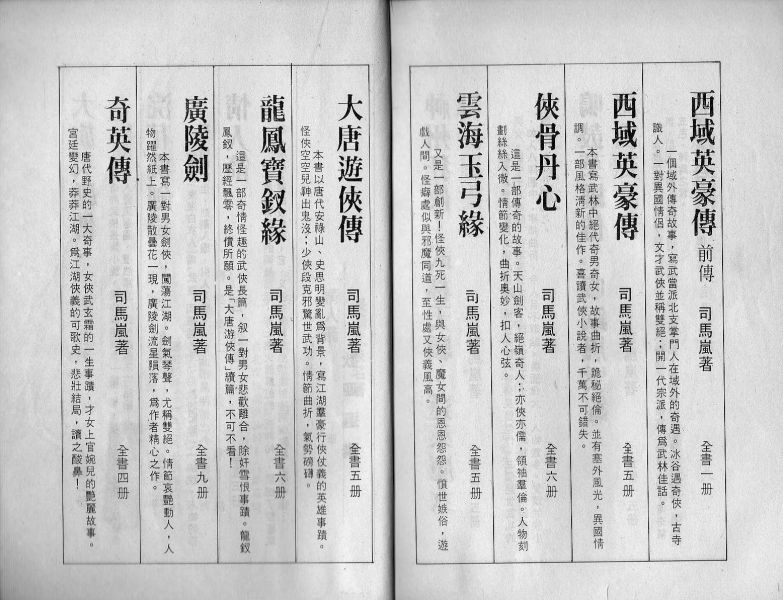 西域英豪傳 前傳 司馬嵐著 全書一册
一個域外傳奇故事，寫武當派北支掌門人在域外的奇遇。冰谷遇奇俠，古寺
識人。一對異國情侶，文才武俠並稱雙絕；開一代宗派，傳為武林佳話。
西域英豪傳 司馬嵐著 全書五册
本書寫武林中絕代奇男奇女，故事曲折，詭秘絕倫。並有塞外風光，異國情
調。一部風格清新的佳作。喜讀武俠小說者，千萬不可錯失。
俠骨丹心 司馬嵐著 全書六册
這是一部傳奇的故事。天山劍客，絕嶺奇人；亦俠亦儒，領袖羣倫。人物刻
劃絲絲入微。情節變化，曲折奧妙，扣人心弦。
雲海玉弓緣 司馬嵐著 全書五册
又是一部創新！怪俠九死一生，與女俠、魔女間的恩恩怨怨。憤世嫉俗，遊
戲人間。怪癖處似與邪魔同道，至性處又俠義風高。
大唐遊俠傳 司馬嵐著 全書五册
本書以唐代安祿山、史思明變亂爲背景，寫江湖羣豪行俠仗義的英雄事蹟。
怪俠空空兒神出鬼没；少俠段克邪驚世武功。情節曲折，氣勢磅礴。
龍鳳寶釵緣 司馬嵐著 全書六册
這是一部奇情怪趣的武俠長篇，叙一對男女悲歡離合，除奸雪恨事蹟。龍釵
鳳釵，歷經飄零，終償所願。是「大唐游俠傳」續篇，不可不看！
廣陵劍 司馬嵐著 全書九册
本書寫一對男女劍俠，闖蕩江湖。劍氣琴聲，尤稱雙絕。情節哀艷動人，人
物躍然紙上。廣陵散曇花一現，廣陵劍流星隕落，爲作者精心之作。
奇英傳 司馬嵐著 全書四册
唐代野史的一大奇事，女俠武玄霜的一生事蹟，才女上官婉兒的艷麗故事。
宮廷變幻，莽莽江湖。爲江湖俠義的可歌史，悲壯結局，讀之酸鼻！